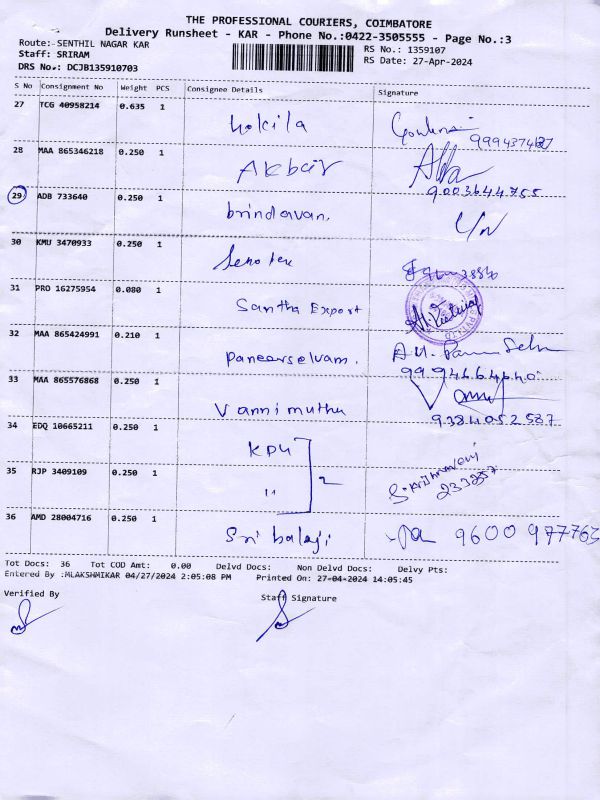 THE PROFESSIONAL COURIERS, COIMBATORE
Delivery Runsheet - KAR - Phone No.:0422-3505555 - Page No.:3
Route:- SENTHIL NAGAR KAR
Staff: SRIRAM
DRS No.: DCJB135910703
RS No.: 1359107
RS Date: 27-Apr-2024
S No Consignment No Weight PCS Consignee Details Signature
27 TCG 40958214 0.635 1 kokila
28 MAA 865346218 0.250 1 Akbar 9003644755
29 ADB 733640 0.250 1 brindavan.
30 KMU 3470933 0.250 1
31 PRO 16275954 0.080 1 Santha Export
32 MAA 865424991 0.210 1 Paneerselvam.
9994664640
33 MAA 865576868 0.250 1 Vannimuthu
9384052587
34 EDQ 10665211 0.250 1 KPU
35 RJP 3409109 0.250 1 " 2 233257
36 AMD 28004716 0.250 1 Sri balaji 9600977763
Tot Docs: 36 Tot COD Amt: 0.00 Delvd Docs: Non Delvd Docs: Delvy Pts:
Entered By :MLAKSHMIKAR 04/27/2024 2:05:08 PM Printed On: 27-04-2024 14:05:45
Verified By Staff Signature